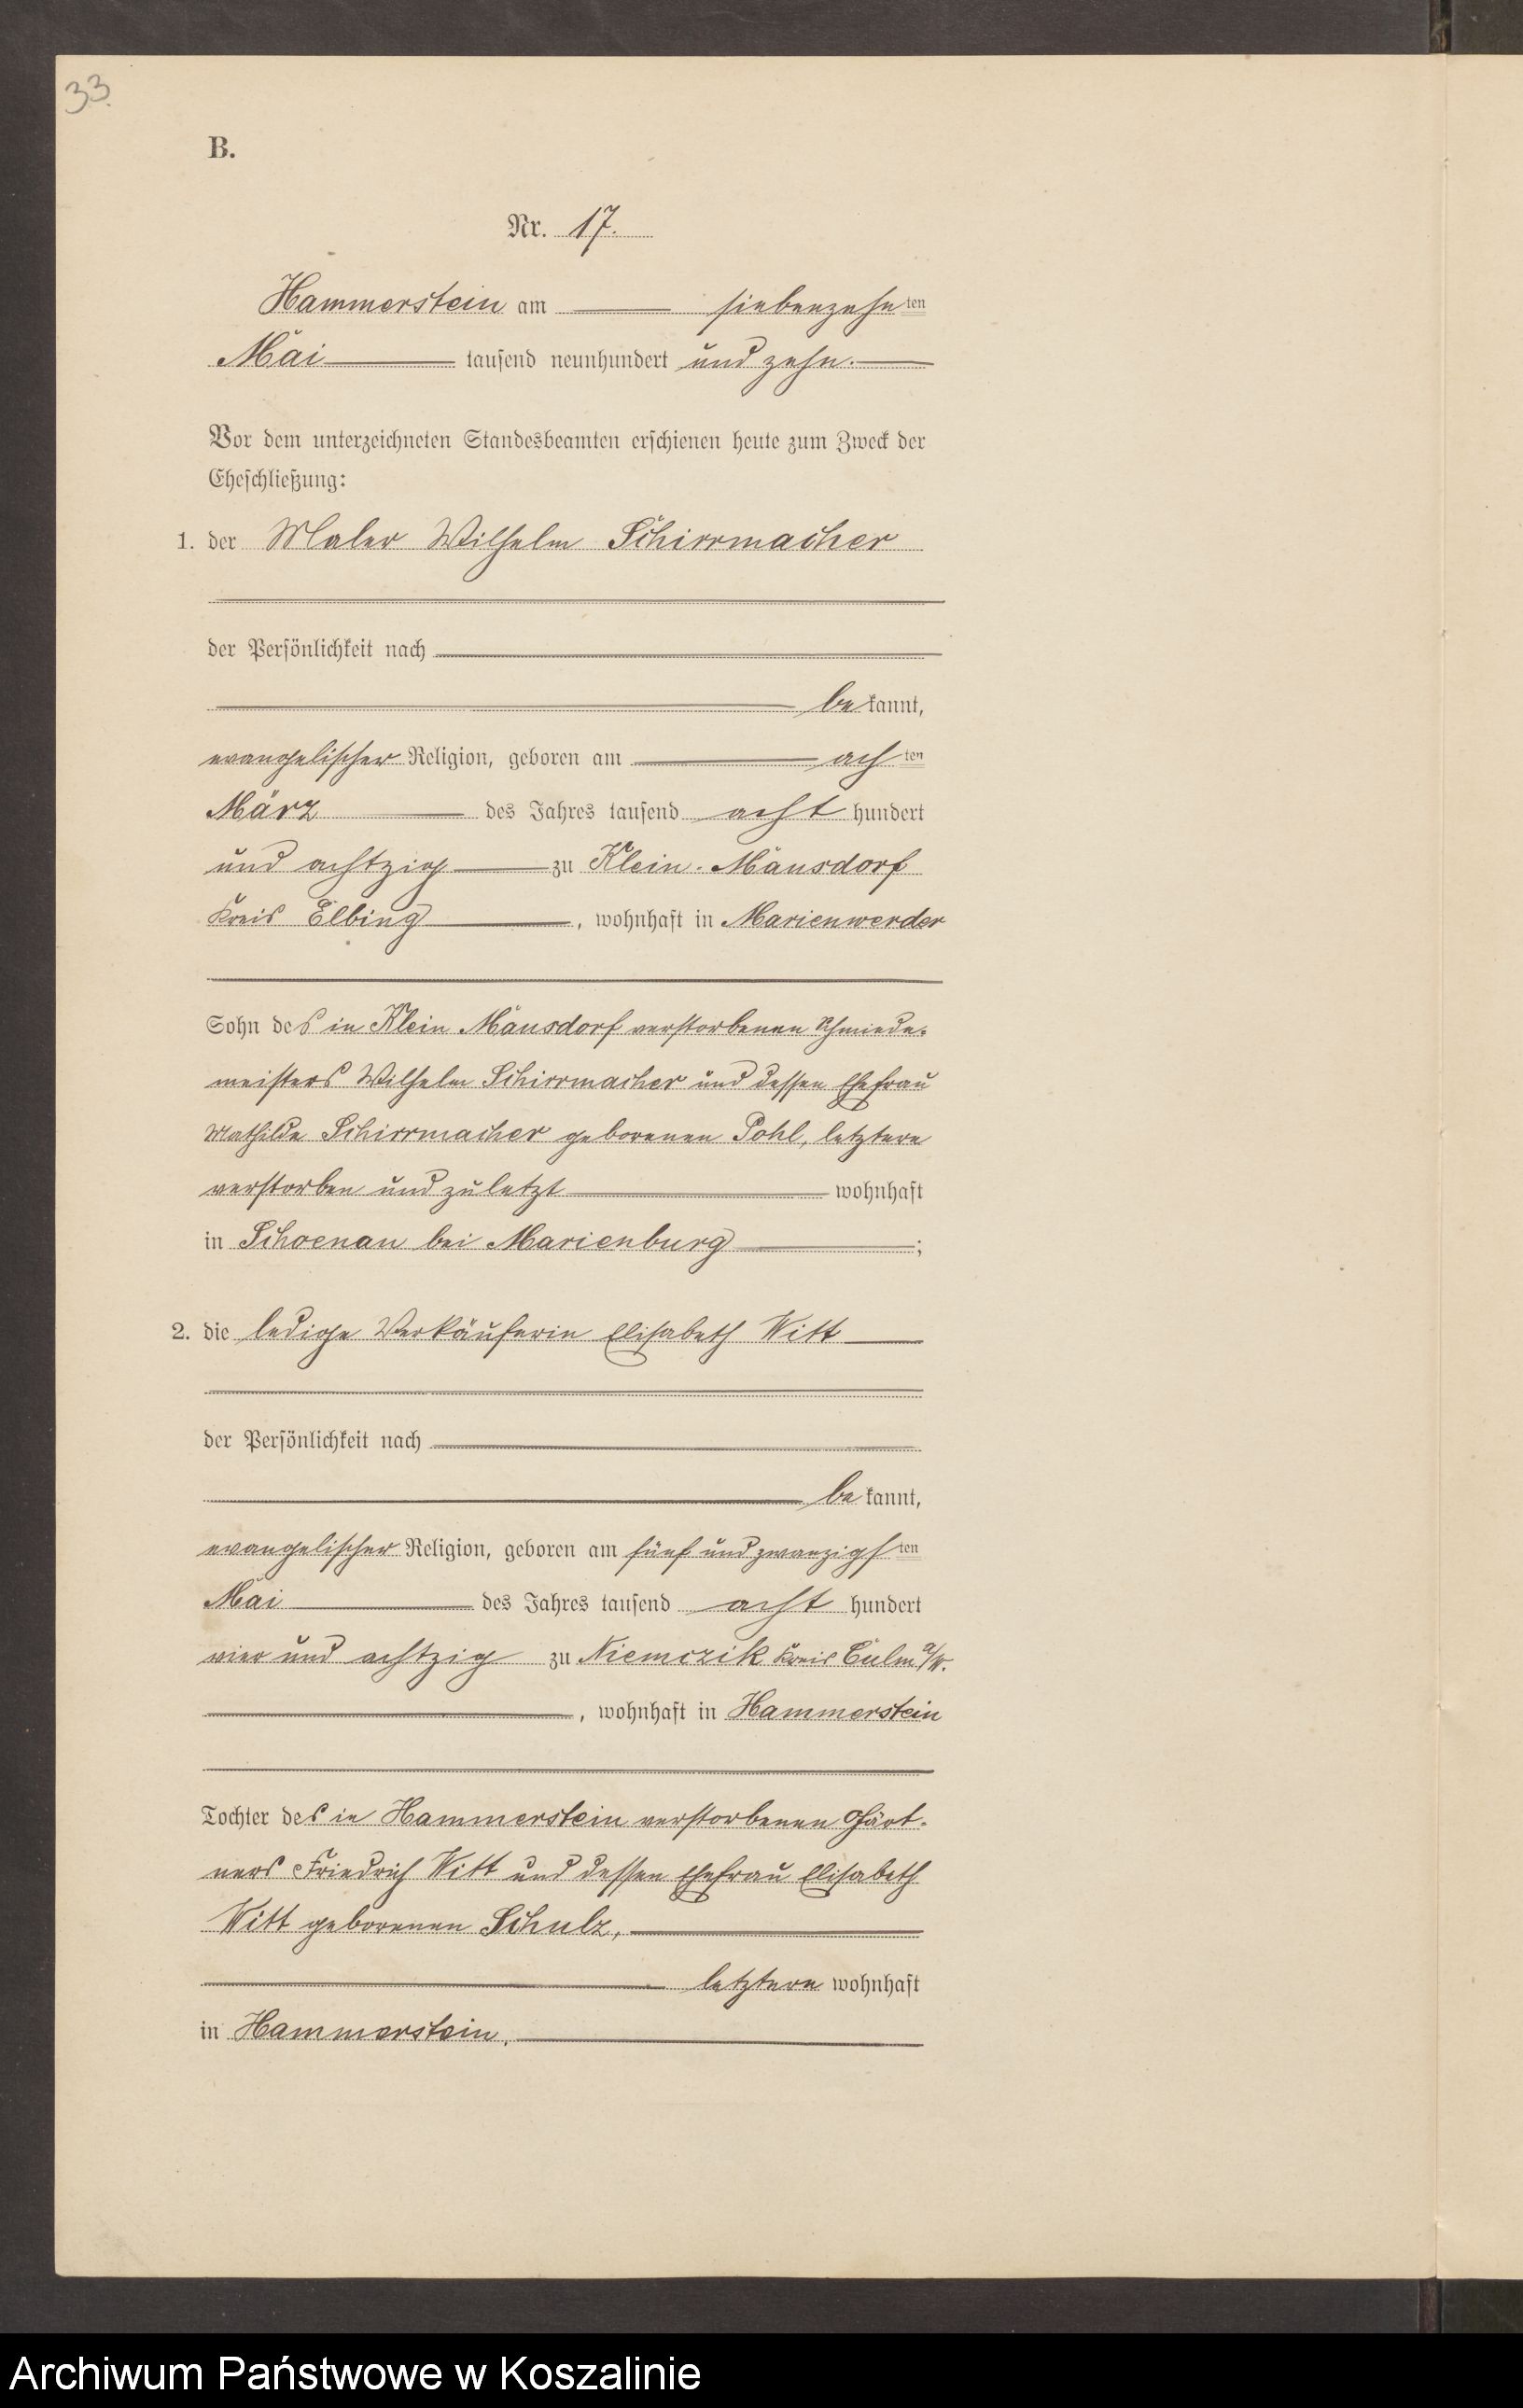 33.
B.
Nr. 17.
Hammerstein am siebenzehnten
Mai tausend neunhundert und zehn.
Vor dem unterzeichneten Standesbeamten erschienen heute zum Zweck der
Eheschließung:
1. der Maler Wilhelm Schirrmacher
der Persönlichkeit nach
bekannt,
evangelischer Religion, geboren am achten
März des Jahres tausend acht hundert
und achtzig zu Klein-Mausdorf
Kreis Elbing, wohnhaft in Marienwerder
Sohn des in Klein Mausdorf verstorbenen Schmiede-
meisters Wilhelm Schirrmacher und dessen Ehefrau
Mathilde Schirrmacher geborenen Pohl, letztere
verstorben und zuletzt wohnhaft
in Schoenau bei Marienburg;
2. die ledige Verkäuferin Elisabeth Witt
der Persönlichkeit nach
bekannt,
evangelischer Religion, geboren am fünf und zwanzigsten
Mai des Jahres tausend acht hundert
vier und achtzig zu Niemczik Kreis Culm a/W.
, wohnhaft in Hammerstein
Tochter des in Hammerstein verstorbenen Gärt-
ners Friedrich Witt und dessen Ehefrau Elisabeth
Witt geborenen Schulz,
letztere wohnhaft
in Hammerstein.
Archiwum Państwowe w Koszalinie